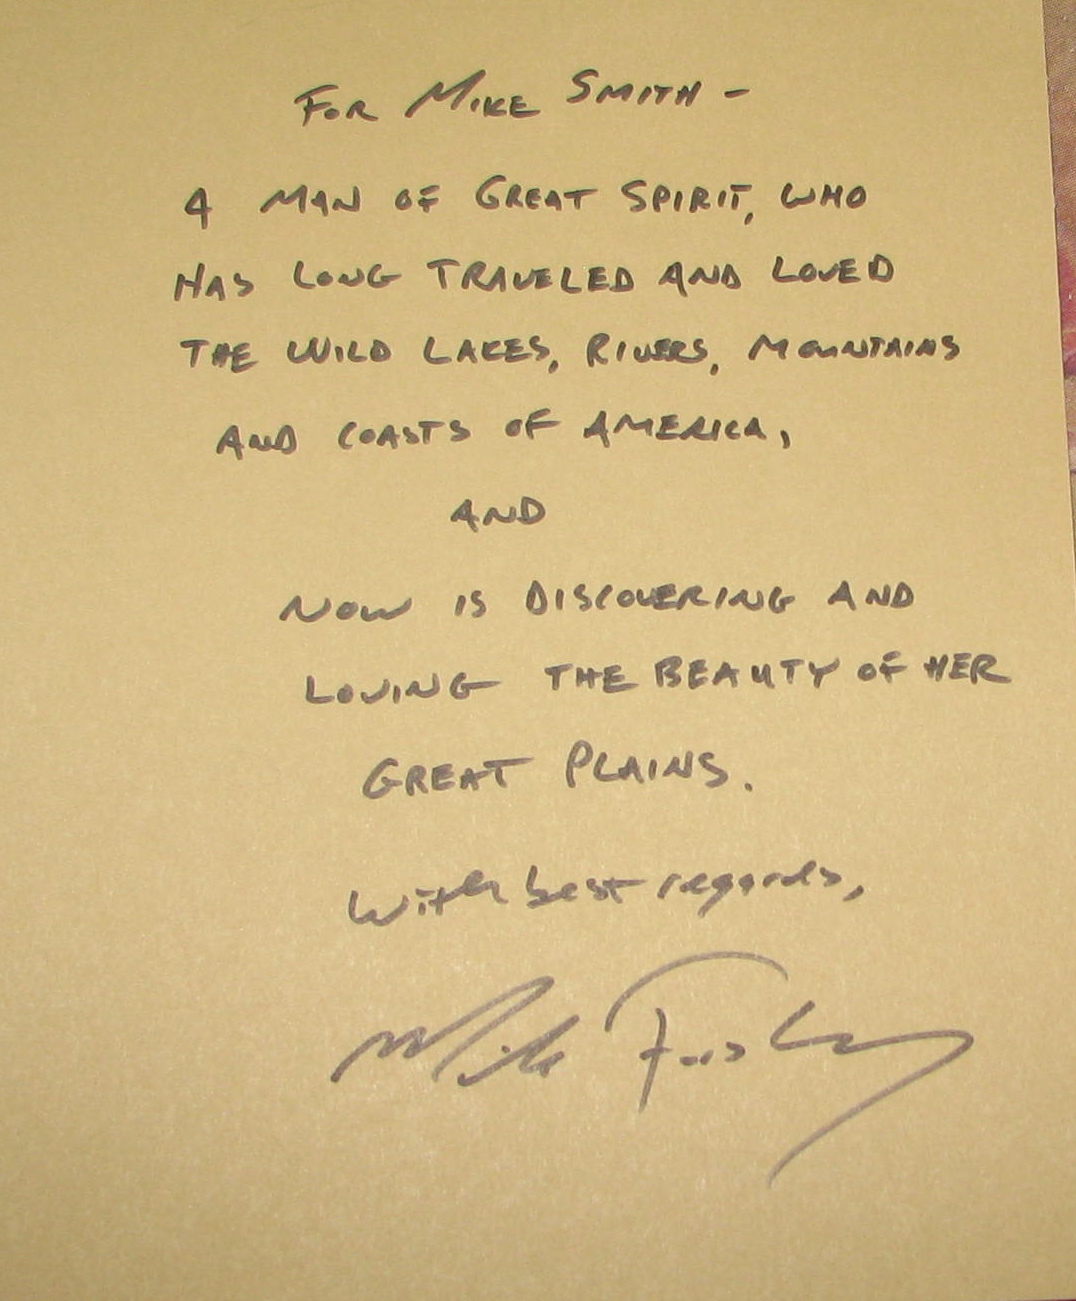 FOR MIKE SMITH -
A MAN OF GREAT SPIRIT, WHO
HAS LONG TRAVELED AND LOVED
THE WILD LAKES, RIVERS, MOUNTAINS
AND COASTS OF AMERICA,
AND
NOW IS DISCOVERING AND
LOVING THE BEAUTY OF HER
GREAT PLAINS.
With best regards,
Mike